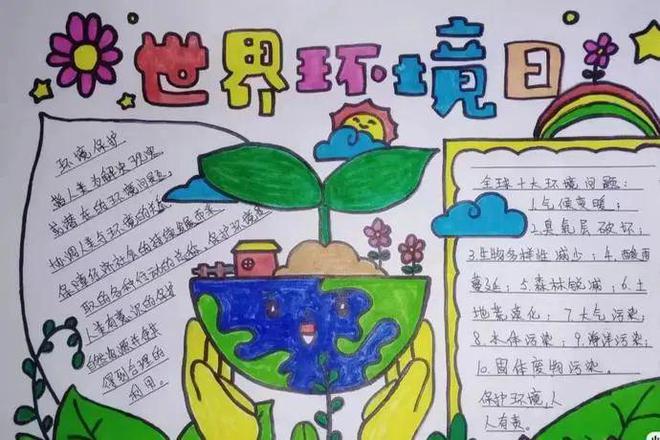 世界环境日
环境保护
指人类为解决现实
或潜在的环境问题,
协调人类与环境的关系,
保障经济社会的持续发展而采
取的各种行动的总称。保护环境是
人类有意识的保护
自然资源并使其
得到合理的
利用。
全球十大环境问题:
1.气候变暖;
2.臭氧层破坏;
3.生物多样性减少;4.酸雨
蔓延;5.森林锐减;6.土
地荒漠化;7.大气污染;
8.水体污染;9.海洋污染;
10.固体废物污染。
保护环境,人
人有责。